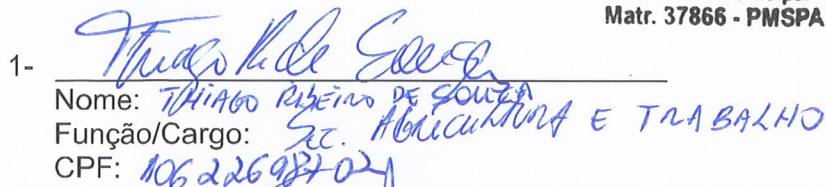 Matr. 37866 - PMSPA
1- Thiago R. de Souza
Nome: THIAGO RIBEIRO DE SOUZA
Função/Cargo: Sec. AGRICULTURA E TRABALHO
CPF: 10622698702